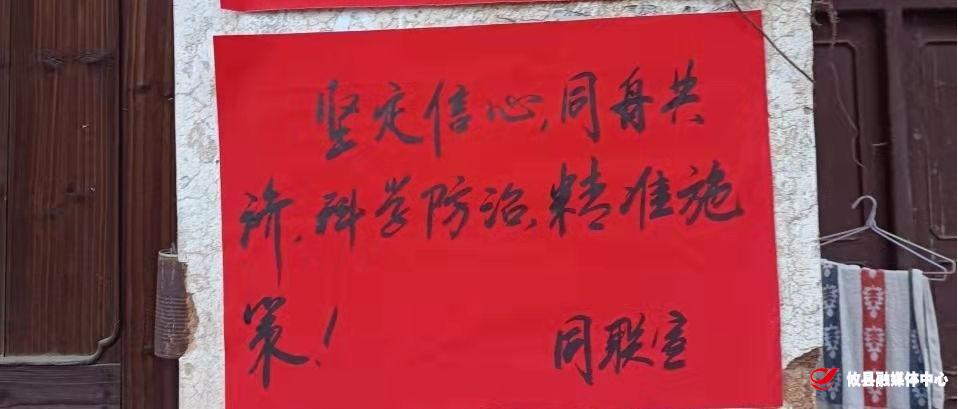 坚定信心,同舟共
济、科学防治、精准施
策!
同联宣
攸县融媒体中心